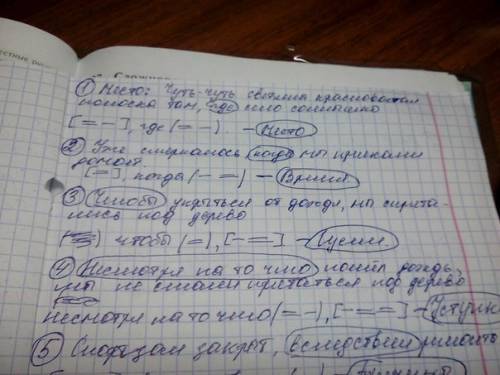 ① Место: Чуть-чуть светила красноватая
полоска там, где село солнышко
[= –], где (= –). – Место
② Уже смеркалось когда мы приехали
домой.
[=], когда (– =) – Время
③ Чтобы укрыться от дождя, мы спрята-
лись под дерево
чтобы (=), [– =]
④ Несмотря на то что пошёл дождь,
мы не стали прятаться под дерево
несмотря на то что (= –), [– = =] – Уступк
⑤ закрыт, вследствии ремонта